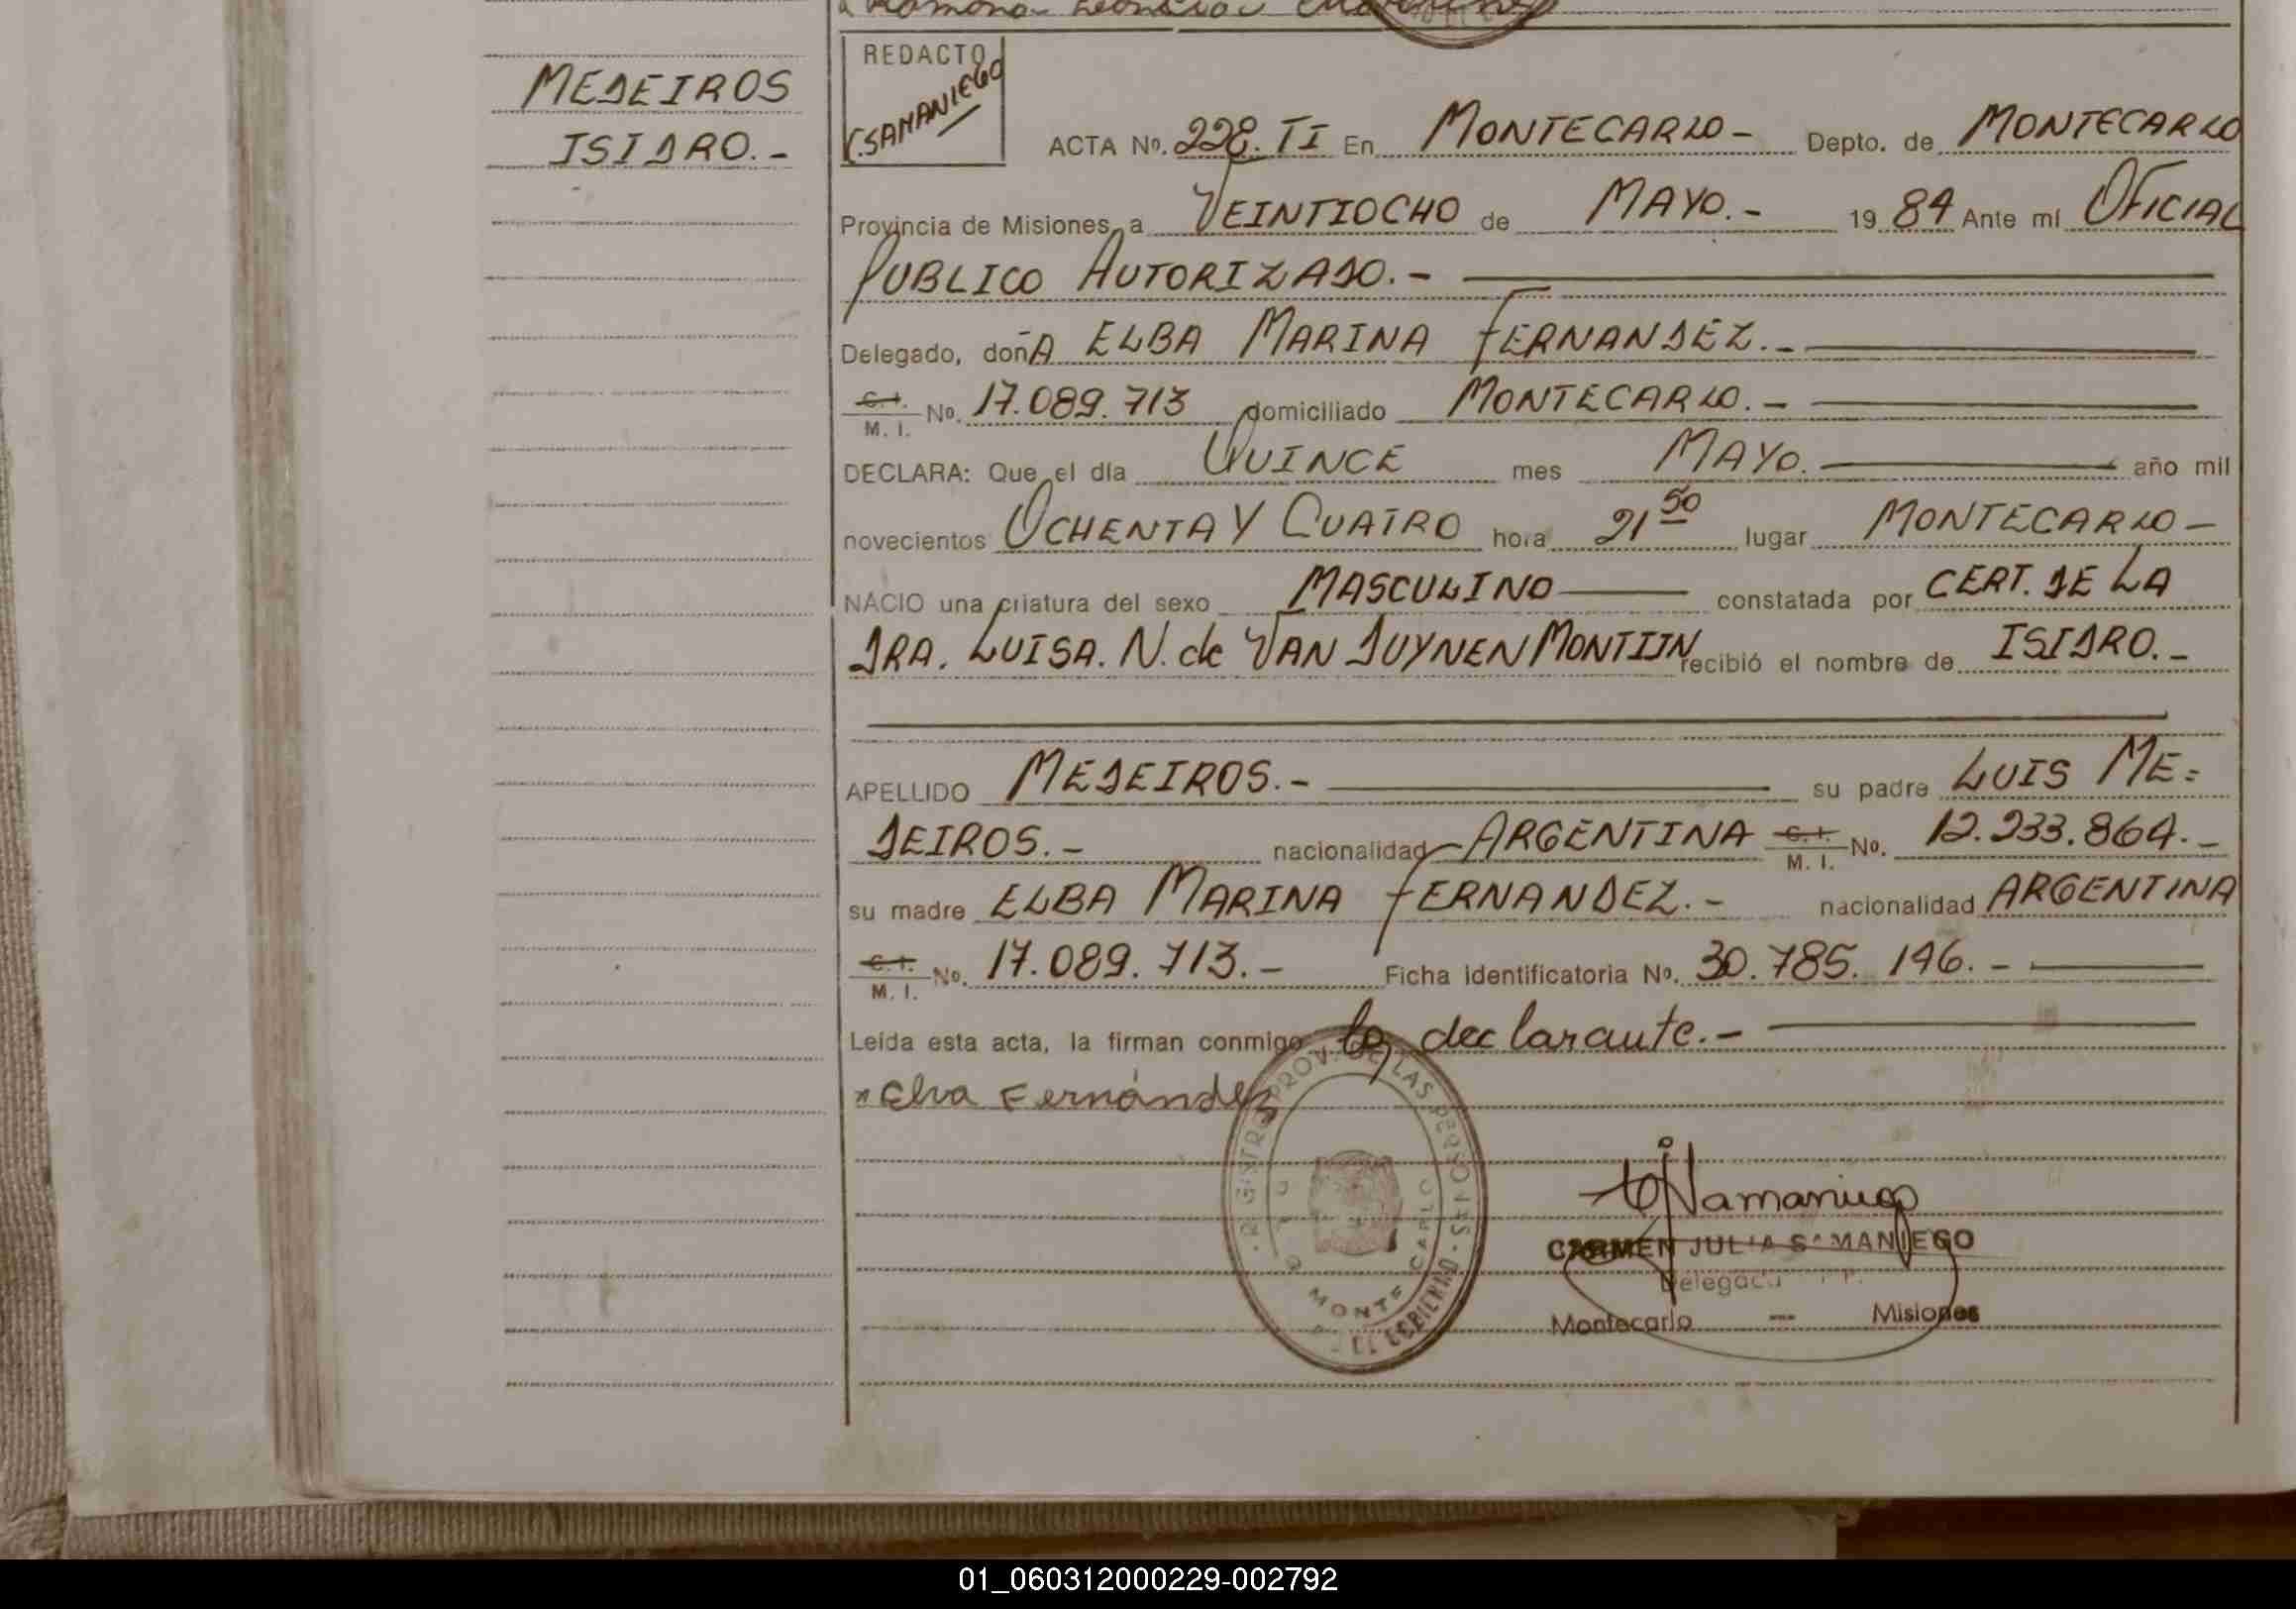 MEDEIROS
ISIDRO.-
REDACTO
C.SAMANIEGO
ACTA Nº. 228. TI En MONTECARLO- Depto. de MONTECARLO
Provincia de Misiones, a VEINTIOCHO de MAYO.- 19 84 Ante mí OFICIAL
PUBLICO AUTORIZADO.-
Delegado, doñA ELBA MARINA FERNANDEZ.-
C.I. M. I. Nº. 17.089.713 domiciliado MONTECARLO.-
DECLARA: Que el día QUINCE mes MAYO. año mil
novecientos OCHENTA Y CUATRO hora 21 50 lugar MONTECARLO-
NACIO una criatura del sexo MASCULINO constatada por CERT. DE LA
DRA. LUISA. N. de VAN DUYNEN MONTIJN recibió el nombre de ISIDRO.-
APELLIDO MEDEIROS.- su padre LUIS ME=
DEIROS.- nacionalidad ARGENTINA C.I. M. I. Nº. 12.233.864.-
su madre ELBA MARINA FERNANDEZ.- nacionalidad ARGENTINA
C.I. M. I. Nº. 17.089.713.- Ficha identificatoria Nº. 30.785.196.-
Leída esta acta, la firman conmigo la declarante.-
x Elva Fernández
REGISTRO PROV. DE LAS PERSONAS
MONTECARLO
Samaniego
CARMEN JULIA SAMANIEGO
Delegada
Montecarlo — Misiones
01_060312000229-002792